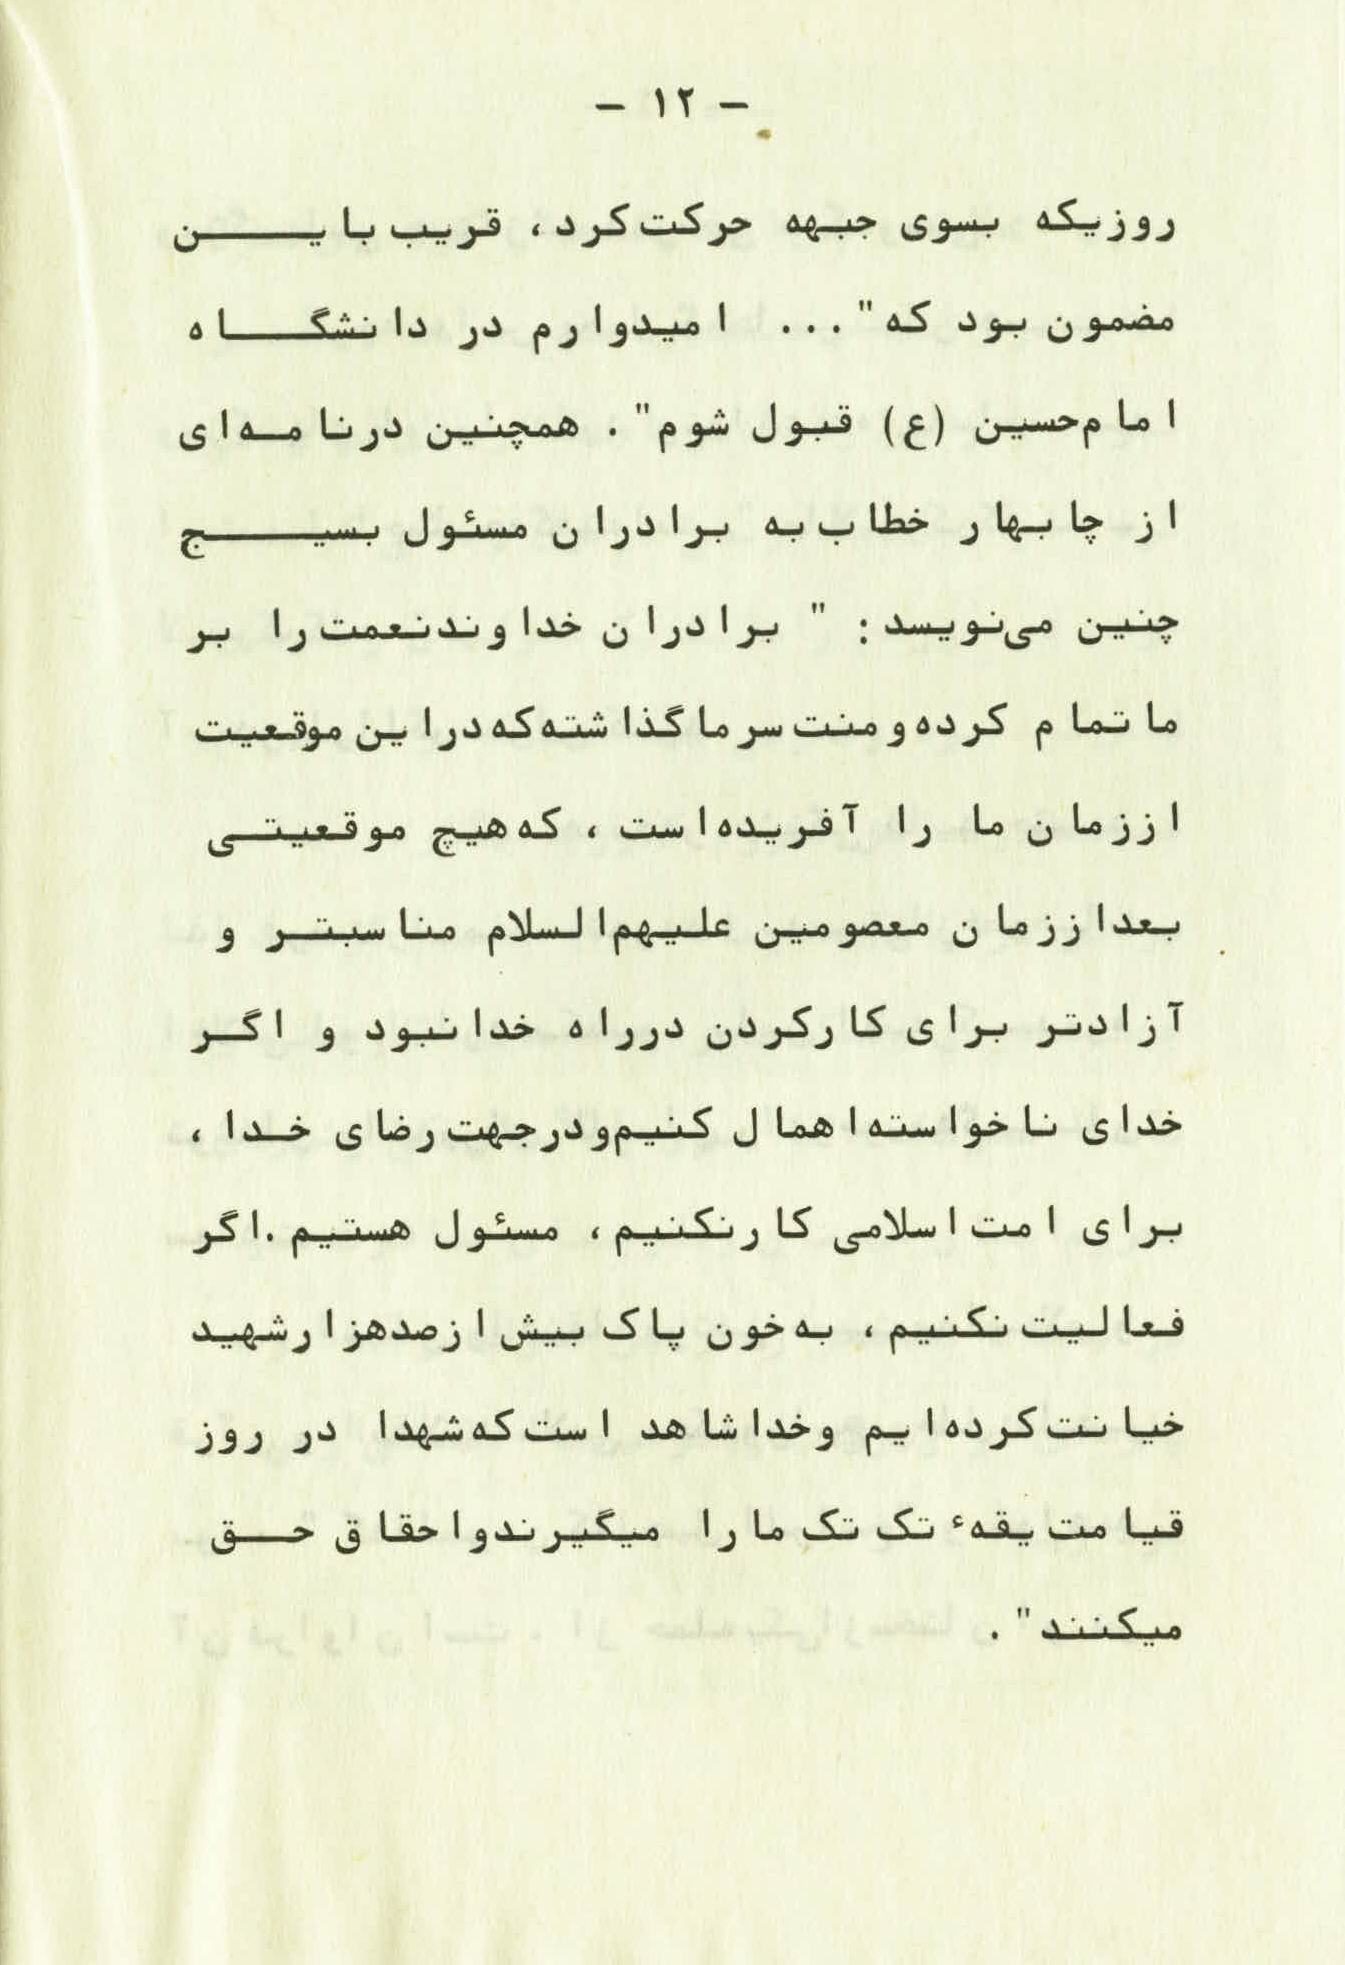 - ۱۲ -
روزیکه بسوی جبهه حرکت کرد، قریب باین
مضمون بود که "... امیدوارم در دانشگاه
امام‌حسین (ع) قبول شوم". همچنین درنامه‌ای
از چابهار خطاب به برادران مسئول بسیج
چنین می‌نویسد: " برادران خداوند نعمت را بر
ما تمام کرده و منت سر ما گذاشته که دراین موقعیت
اززمان ما را آفریده‌است، که هیچ موقعیتی
بعداززمان معصومین علیهم‌السلام مناسبتر و
آزادتر برای کارکردن درراه خدا نبود و اگر
خدای ناخواسته اهمال کنیم ودرجهت رضای خدا،
برای امت اسلامی کارنکنیم، مسئول هستیم.اگر
فعالیت نکنیم، به خون پاک بیش ازصدهزارشهید
خیانت کرده‌ایم وخداشاهد است که شهدا در روز
قیامت یقهٔ تک تک مارا میگیرندواحقاق حق
میکنند".